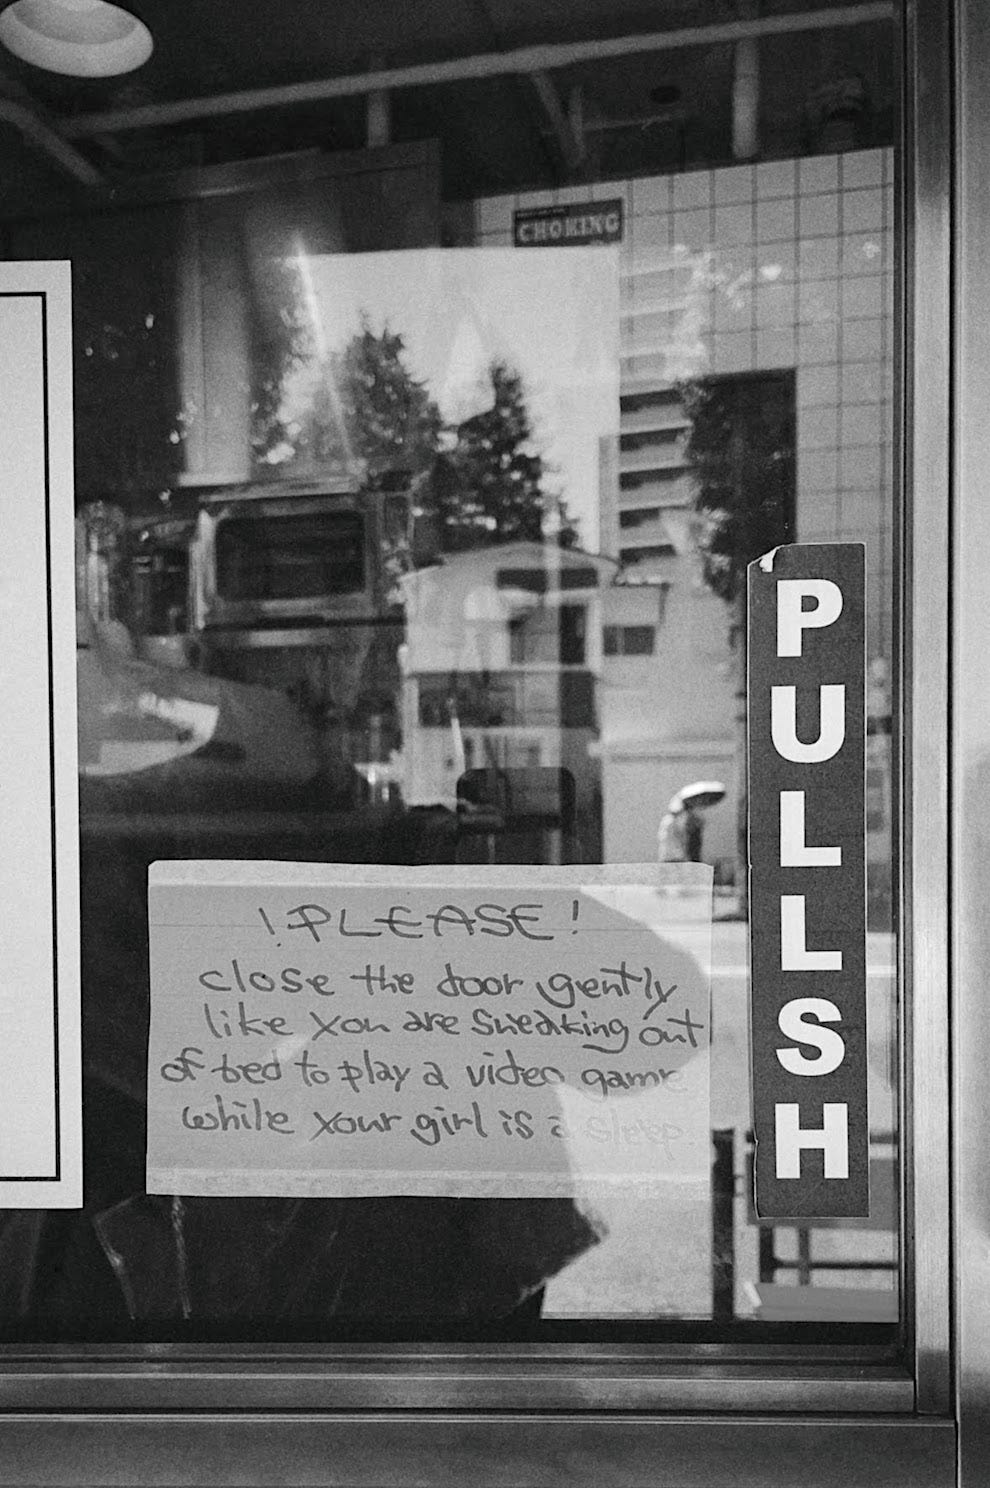 CHOKING
! PLEASE !
close the door gently
like you are sneaking out
of bed to play a video game
while your girl is a sleep.
PULLSH